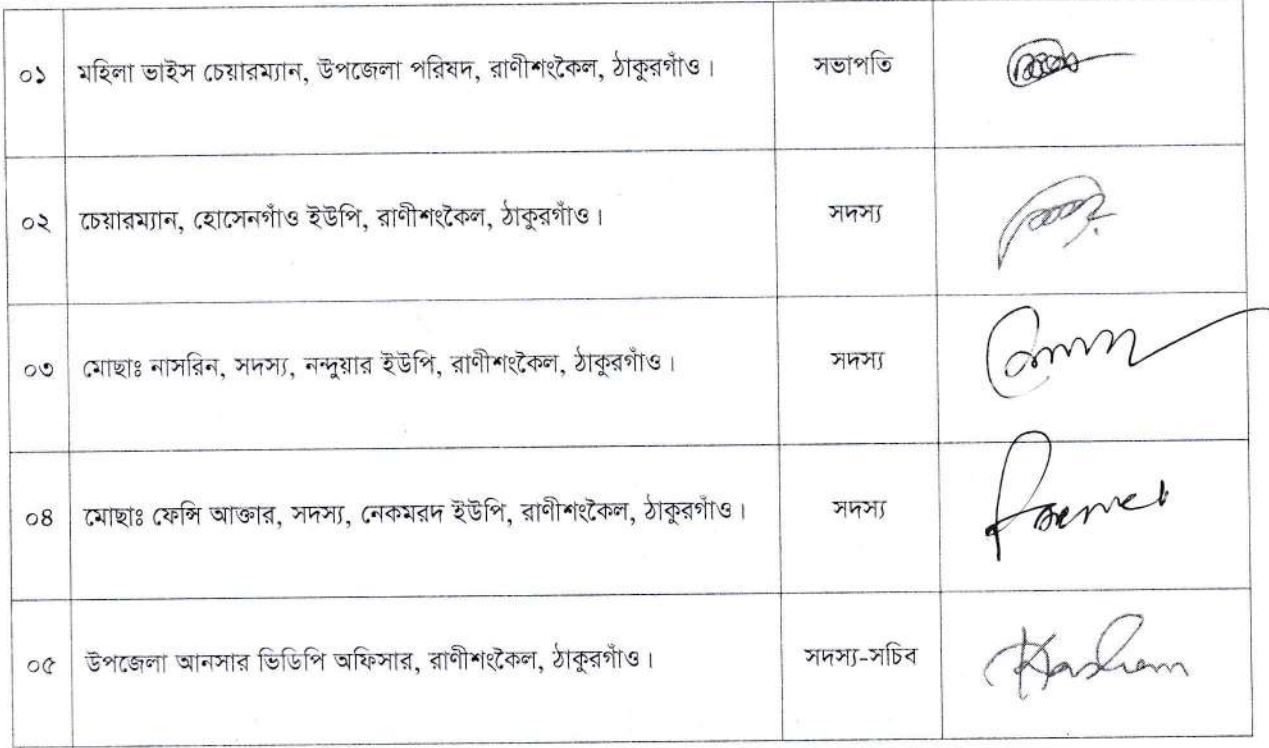 ০১ মহিলা ভাইস চেয়ারম্যান, উপজেলা পরিষদ, রাণীশংকৈল, ঠাকুরগাঁও। সভাপতি
০২ চেয়ারম্যান, হোসেনগাঁও ইউপি, রাণীশংকৈল, ঠাকুরগাঁও। সদস্য
০৩ মোছাঃ নাসরিন, সদস্য, নন্দুয়ার ইউপি, রাণীশংকৈল, ঠাকুরগাঁও। সদস্য
০৪ মোছাঃ ফেন্সি আক্তার, সদস্য, নেকমরদ ইউপি, রাণীশংকৈল, ঠাকুরগাঁও। সদস্য
০৫ উপজেলা আনসার ভিডিপি অফিসার, রাণীশংকৈল, ঠাকুরগাঁও। সদস্য-সচিব